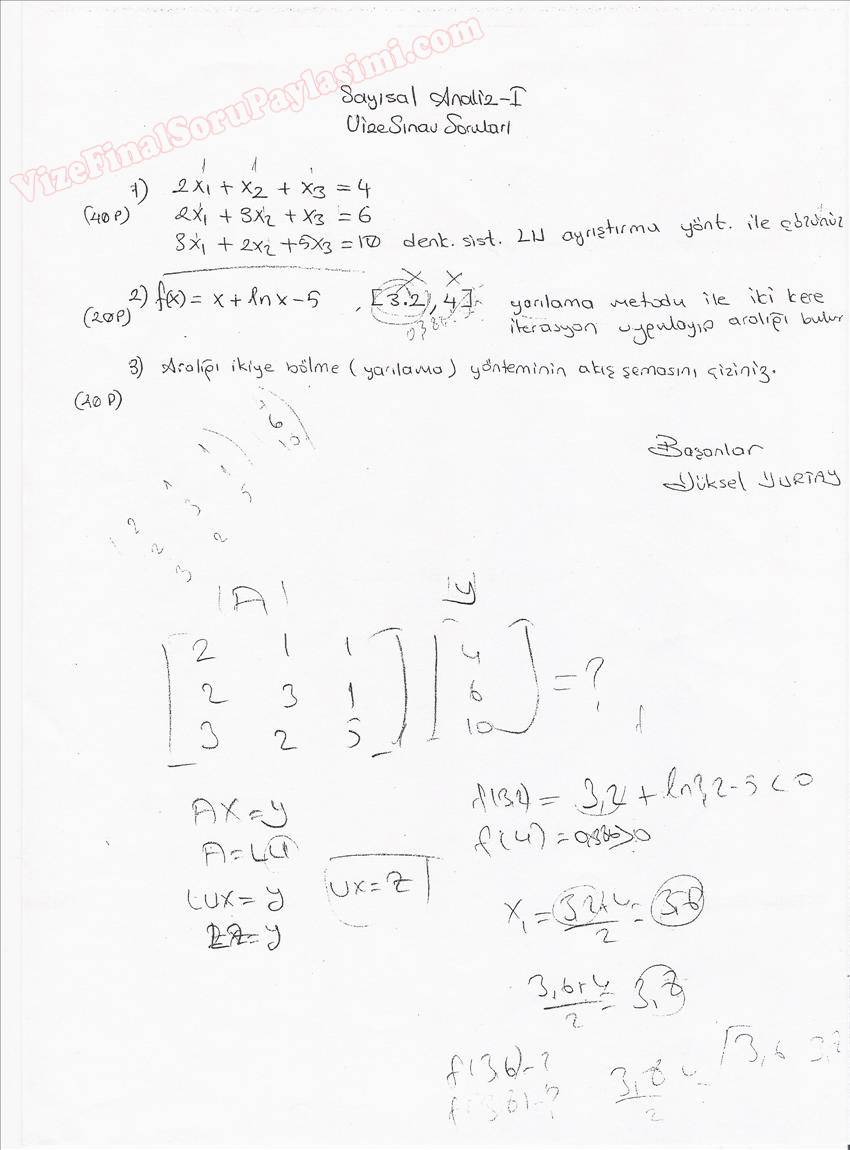 VizeFinalSoruPaylasimi.com
Sayısal Analiz-I
Vize Sınav Soruları
1) 2x₁ + x₂ + x₃ = 4
(40P) 2x₁ + 3x₂ + x₃ = 6
3x₁ + 2x₂ + 5x₃ = 10 denk. sist. LU ayrıştırma yönt. ile çözünüz
2) f(x) = x + lnx - 5 , [3.2, 4] yarılama metodu ile iki kere
(20P) iterasyon uygulayıp aralığı bulun
3) Aralığı ikiye bölme (yarılama) yönteminin akış şemasını çiziniz.
(20P)
Başarılar
Yüksel YURTAY
|A| y
2 1 1 4
2 3 1 6 = ?
3 2 5 10
AX = y
A = LU
LUX = y
UX = Z
LZ = y
f(3,2) = 3,2 + ln3,2 - 5 < 0
f(4) = 0,386 > 0
x₁ = 3,2+4/2 = 3,6
3,6+4/2 = 3,8
f(3,6) = ?